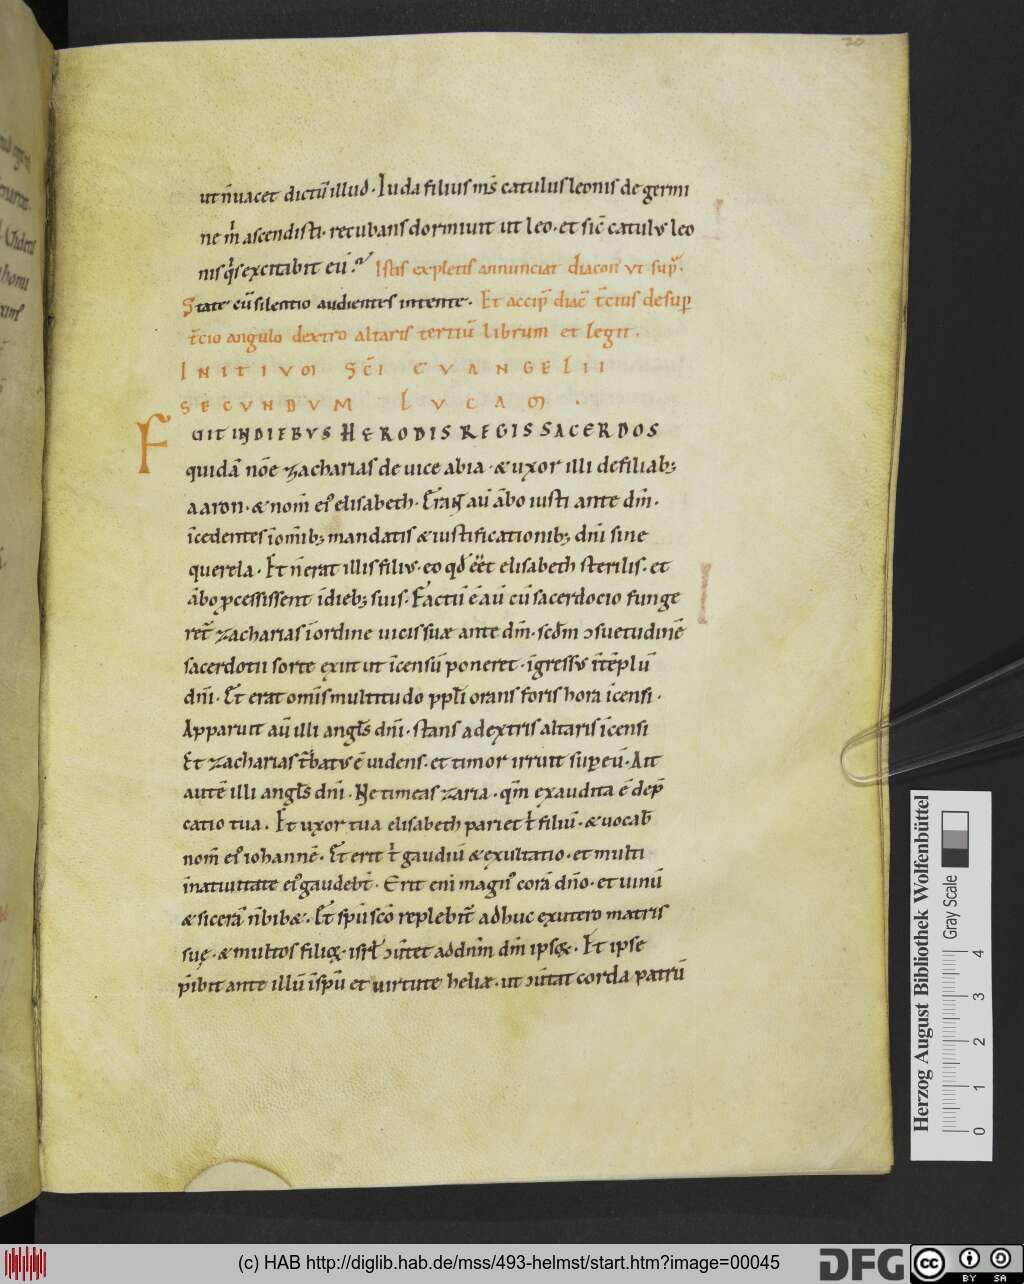 20
ut n̄ uacet dictū illud. Iuda filius m̄s catulus leonis de germi
ne m̄ ascendisti. recubans dormiuit ut leo. et sic̄ catulus leo
nis q̓s excitabit eū. Istis expletis annunciat diacon᷒ ut sup̄.
State cū silentio audientes intente. Et accip̄ diac̄ t̄cius desup̄
t̄cio angulo dextro altaris tertiū librum et legit.
INITIUM SC̄I EVANGELII
SECVNDVM LVCAM.
FVIT IN DIEBVS HERODIS REGIS SACERDOS
quidā noē zacharias de uice abia. & uxor illi de filiab;
aaron. & nom̄ ei᷒ elisabeth. Erāt aū ābo iusti ante dm̄.
īcedentes ī om̄ib; mandatis & iustificationib; dn̄i sine
querela. Et n̄ erat illis filius. eo qđ eēt elisabeth sterilis. et
ābo ꝓcessissent ī dieb; suis. Factū ē aū cū sacerdocio funge
ret᷒ zacharias ī ordine uicis suæ ante dm̄. sedm̄ ↄsuetudinē
sacerdotii sorte exiit ut īcensū poneret. īgressus ī tēplū
dn̄i. Et erat omīs multitudo ppl̄i orans foris hora īcensi.
Apparuit aū illi angl̄s dn̄i. stans a dextris altaris īcensi
Et zacharias t̄batus ē uidens. et timor irruit sup eū. Ait
autē illi angl̄s dn̄i. Ne timeas zaria. qm̄ exaudita ē dep̄
catio tua. Et uxor tua elisabeth pariet t̄ filiū. & uocab̄
nom̄ ei᷒ iohannē. Et erit t̄ gaudiū & exultatio. et multi
ī natiuitate ei᷒ gaudebt̄. Erit eni magn᷒ corā dn̄o. et uinū
& sicerā n̄ bib&. Et sp̄u sc̄o replebit᷒ adhuc ex utero matris
suę. & multos filioꝝ. isrł ↄūtet ad dn̄m dm̄ ipsoꝝ. Et ipse
p̄ibit ante illū ī sp̄u et uirtute heliæ. ut ↄūtat corda patrū
Herzog August Bibliothek Wolfenbüttel
Gray Scale
0 1 2 3 4
(c) HAB http://diglib.hab.de/mss/493-helmst/start.htm?image=00045
DFG
cc BY SA